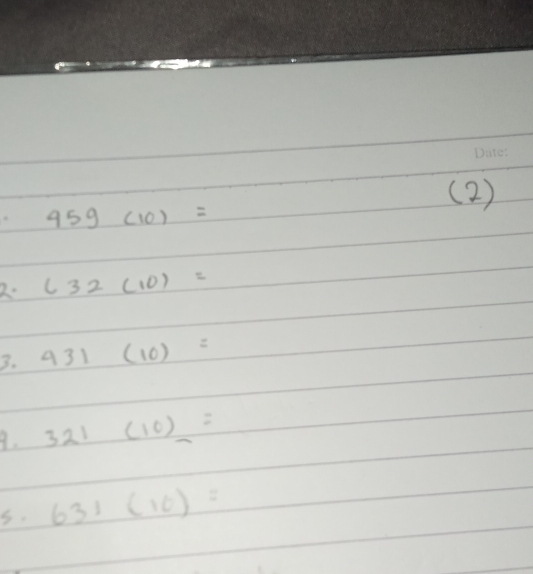 Date:
. 459 (10) = (2)
2. 632 (10) =
3. 431 (10) =
4. 321 (10) =
5. 631 (10) =